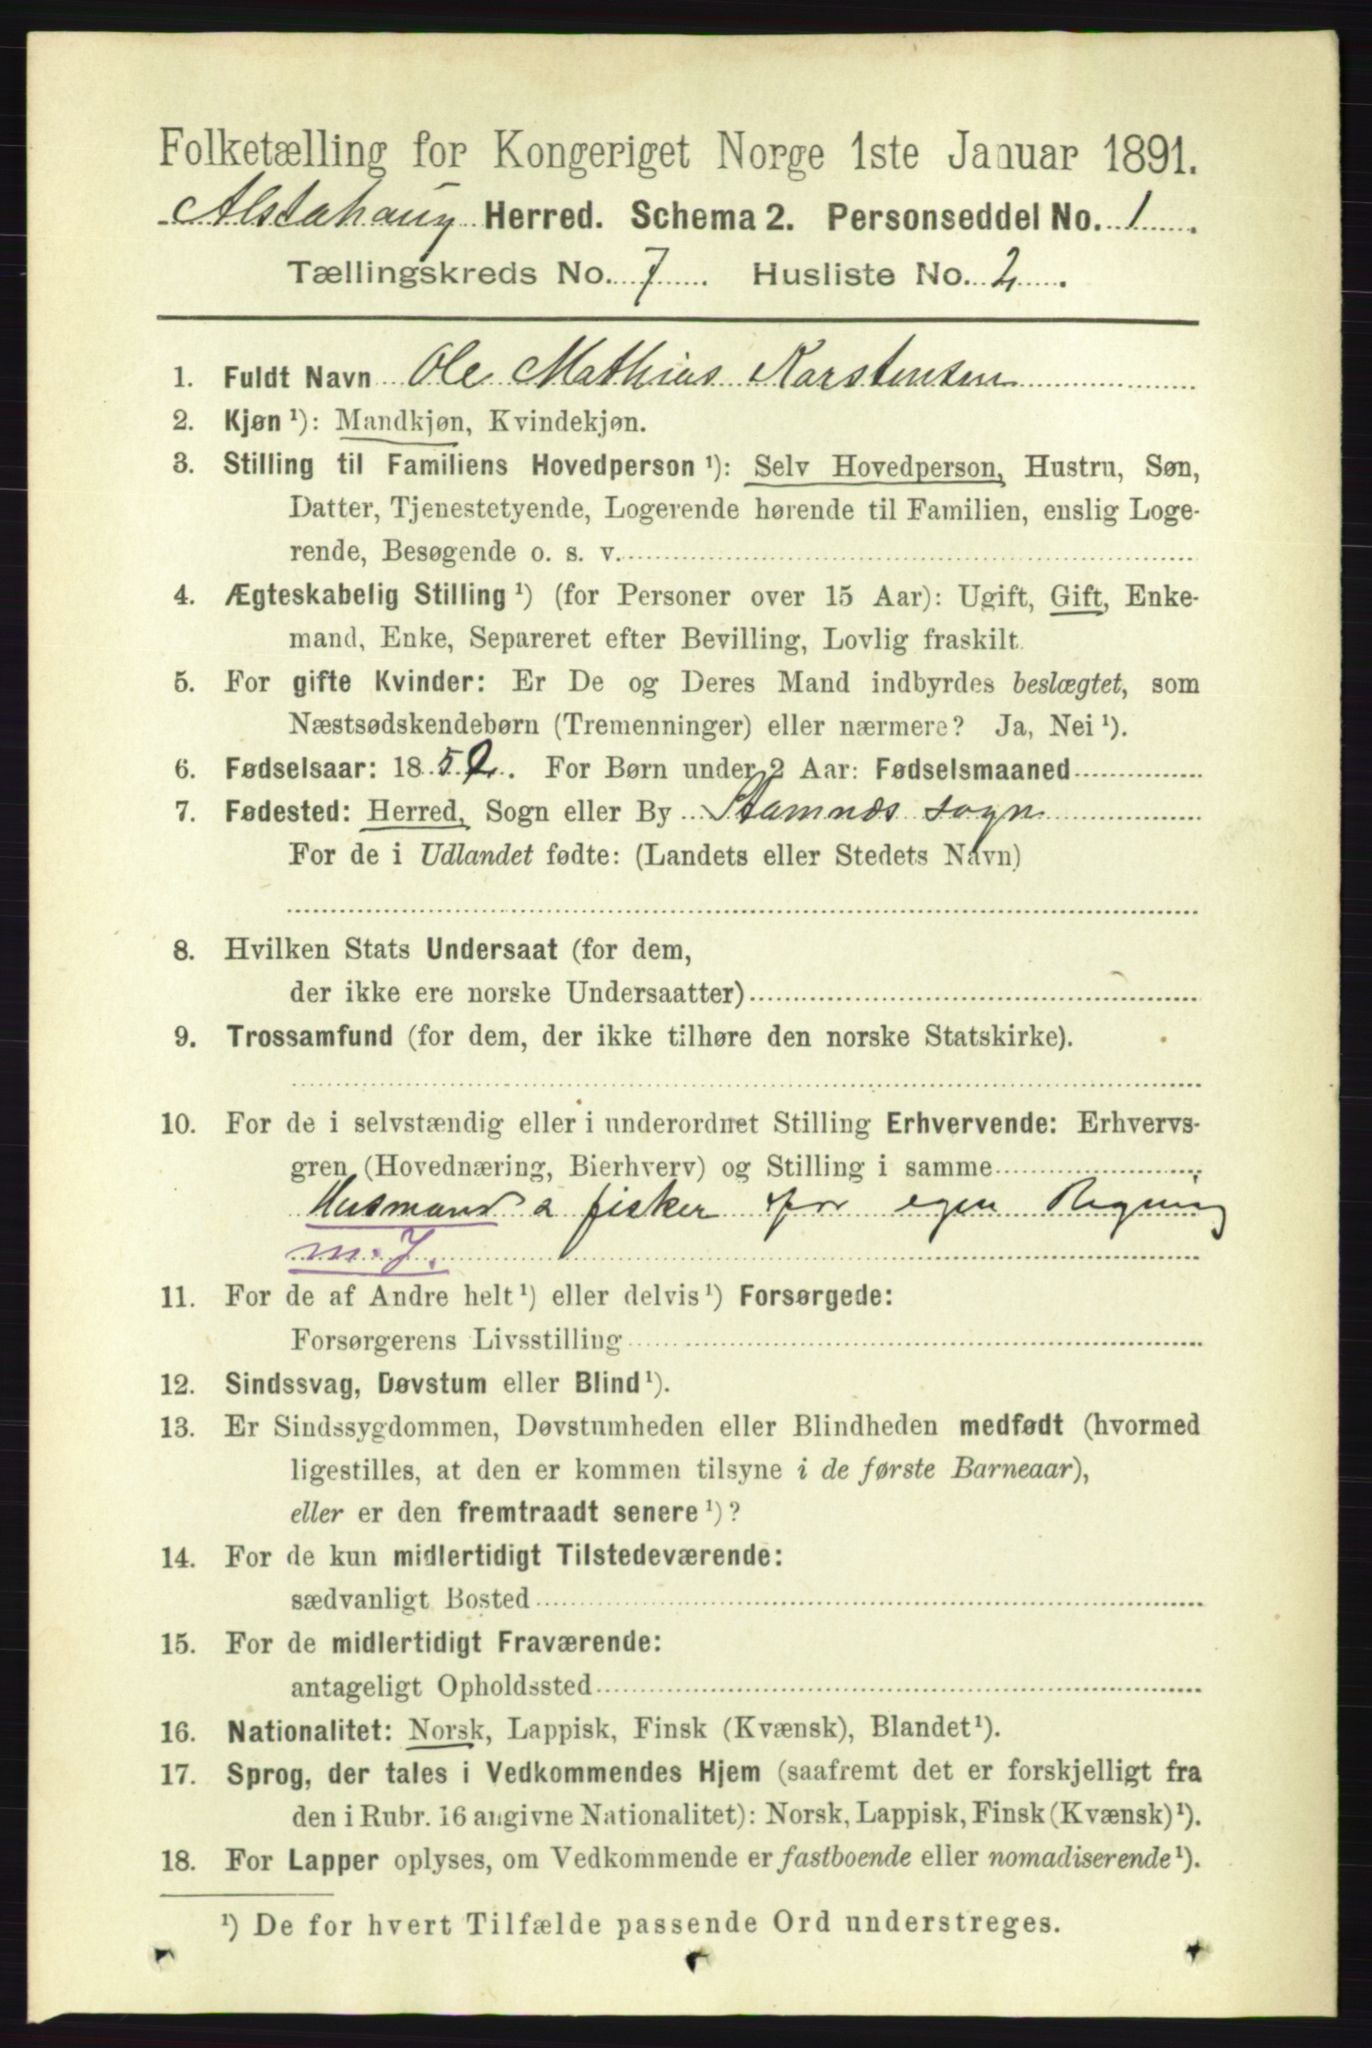 Folketælling for Kongeriget Norge 1ste Januar 1891.
Alstahaug Herred. Schema 2. Personseddel No. 1.
Tællingskreds No. 7. Husliste No. 2.
1. Fuldt Navn Ole Mathias Karstensen
2. Kjøn ¹): Mandkjøn, Kvindekjøn.
3. Stilling til Familiens Hovedperson ¹): Selv Hovedperson, Hustru, Søn,
Datter, Tjenestetyende, Logerende hørende til Familien, enslig Loge-
rende, Besøgende o. s. v.
4. Ægteskabelig Stilling ¹) (for Personer over 15 Aar): Ugift, Gift, Enke-
mand, Enke, Separeret efter Bevilling, Lovlig fraskilt.
5. For gifte Kvinder: Er De og Deres Mand indbyrdes beslægtet, som
Næstsødskendebørn (Tremenninger) eller nærmere? Ja, Nei ¹).
6. Fødselsaar: 1852. For Børn under 2 Aar: Fødselsmaaned
7. Fødested: Herred, Sogn eller By Stamnæs sogn
For de i Udlandet fødte: (Landets eller Stedets Navn)
8. Hvilken Stats Undersaat (for dem,
der ikke ere norske Undersaatter)
9. Trossamfund (for dem, der ikke tilhøre den norske Statskirke).
10. For de i selvstændig eller i underordnet Stilling Erhvervende: Erhvervs-
gren (Hovednæring, Bierhverv) og Stilling i samme
Husmand & fisker for egen Regning
m. J.
11. For de af Andre helt ¹) eller delvis ¹) Forsørgede:
Forsørgerens Livsstilling
12. Sindssvag, Døvstum eller Blind ¹).
13. Er Sindssygdommen, Døvstumheden eller Blindheden medfødt (hvormed
ligestilles, at den er kommen tilsyne i de første Barneaar),
eller er den fremtraadt senere ¹)?
14. For de kun midlertidigt Tilstedeværende:
sædvanligt Bosted
15. For de midlertidigt Fraværende:
antageligt Opholdssted
16. Nationalitet: Norsk, Lappisk, Finsk (Kvænsk), Blandet ¹).
17. Sprog, der tales i Vedkommendes Hjem (saafremt det er forskjelligt fra
den i Rubr. 16 angivne Nationalitet): Norsk, Lappisk, Finsk (Kvænsk) ¹).
18. For Lapper oplyses, om Vedkommende er fastboende eller nomadiserende ¹).
¹) De for hvert Tilfælde passende Ord understreges.